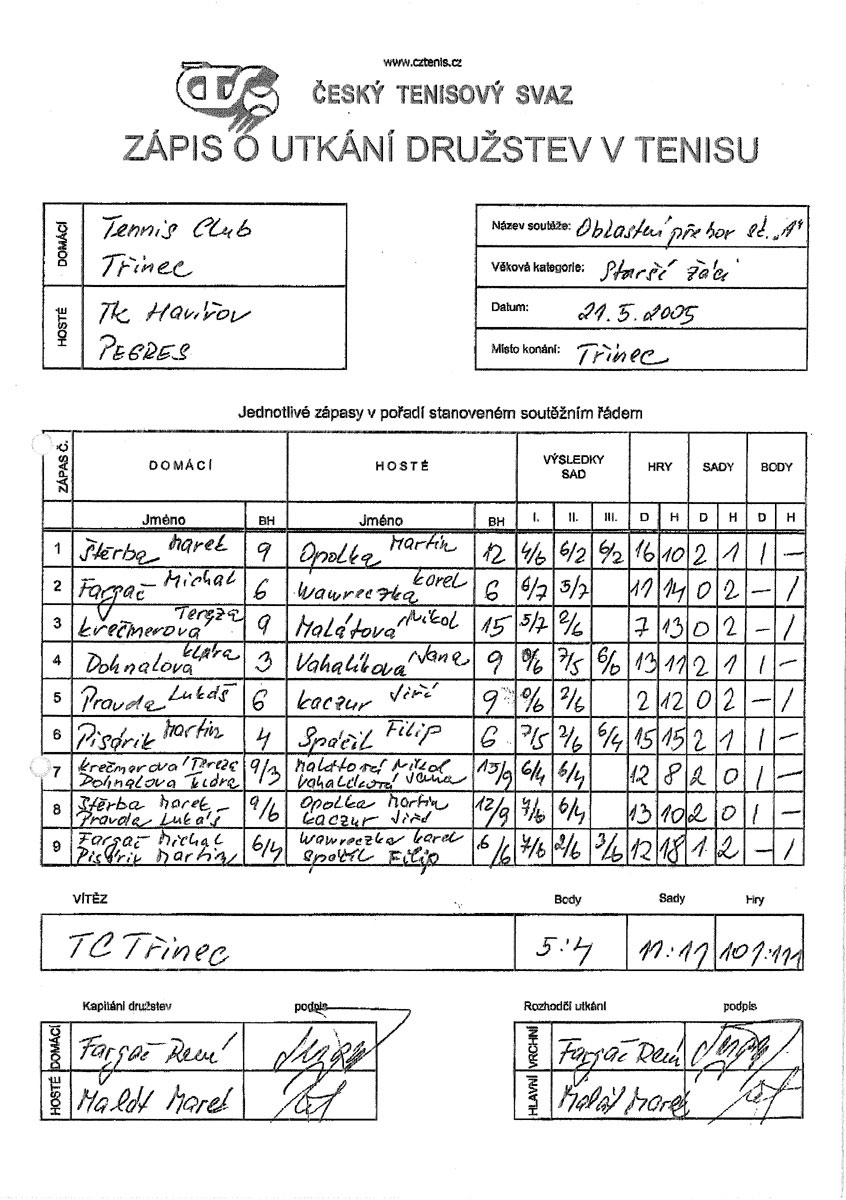 www.cztenis.cz
ČTS ČESKÝ TENISOVÝ SVAZ
ZÁPIS O UTKÁNÍ DRUŽSTEV V TENISU
DOMÁCÍ Tennis Club
Třinec
HOSTÉ TK Havířov
PEGRES
Název soutěže: Oblastní přebor st. „A"
Věková kategorie: Starší žáci
Datum: 21.5.2005
Místo konání: Třinec
Jednotlivé zápasy v pořadí stanoveném soutěžním řádem
ZÁPAS Č. DOMÁCÍ HOSTÉ VÝSLEDKY SAD HRY SADY BODY
Jméno BH Jméno BH I. II. III. D H D H D H
1 Štěrba Marek 9 Opolka Martin 12 4/6 6/2 6/2 16 10 2 1 1 –
2 Fargač Michal 6 Wawreczka Karel 6 6/7 5/7 11 14 0 2 – 1
3 Krečmerova Tereza 9 Malátova Nikol 15 5/7 2/6 7 13 0 2 – 1
4 Dohnalova Klára 3 Vahalíkova Jana 9 0/6 7/5 6/0 13 11 2 1 1 –
5 Pravda Lukáš 6 Kaczur Jiří 9 0/6 2/6 2 12 0 2 – 1
6 Pisárik Martin 4 Spáčil Filip 6 7/5 2/6 6/4 15 15 2 1 1 –
7 Krečmerova Tereza 9/3 Malátová Nikol 15/9 6/4 6/4 12 8 2 0 1 –
Dohnalova Klára Vahalíková Jana
8 Štěrba Marek 9/6 Opolka Martin 12/9 7/6 6/4 13 10 2 0 1 –
Pravda Lukáš Kaczur Jiří
9 Fargač Michal 6/4 Wawreczka Karel 6/6 7/6 2/6 3/6 12 18 1 2 – 1
Pisárik Martin Spáčil Filip
VÍTĚZ Body Sady Hry
TC Třinec 5:4 11:11 101:111
Kapitáni družstev podpis
DOMÁCÍ Fargač René
HOSTÉ Malát Marek
Rozhodčí utkání podpis
VRCHNÍ Fargač René
HLAVNÍ Malát Marek